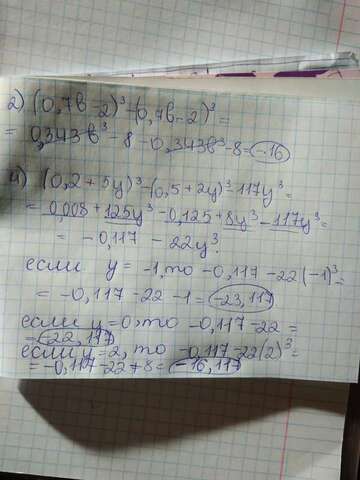 2) (0,7в-2)³-(0,7в-2)³=
= 0,343в³-8-0,343в³-8=-16
4) (0,2+5y)³-(0,5+2y)³-117y³=
= 0,008+125y³-0,125+8y³-117y³=
= -0,117-22y³.
если y=-1, то -0,117-22(-1)³=
= -0,117-22-1=-23,117
если y=0, то -0,117-22=
=-22,117
если y=2, то -0,117-22(2)³=
= -0,117-22+8=-16,117